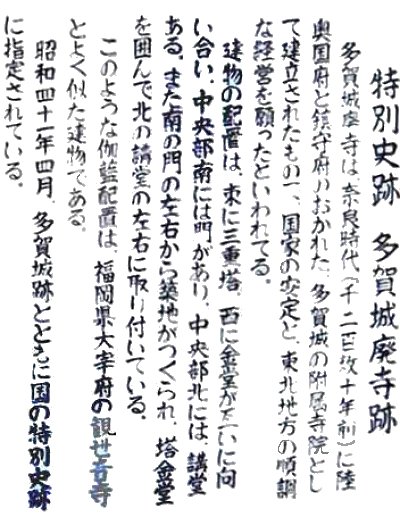 特別史跡 多賀城廃寺跡
多賀城廃寺は、奈良時代(千二百数十年前)に陸
奥国府と鎮守府がおかれた、多賀城の附属寺院とし
て建立されたもので、国家の安定と、東北地方の順調
な経営を願ったといわれてる。
建物の配置は、東に三重塔、西に金堂が互いに向
い合い、中央部南には門があり、中央部北には、講堂
ある。また南の門の左右から築地がつくられ、塔金堂
を囲んで北の講堂の左右に取り付いている。
このような伽藍配置は、福岡県大宰府の観世音寺
とよく似た建物である。
昭和四十一年四月、多賀城跡とともに国の特別史跡
に指定されている。